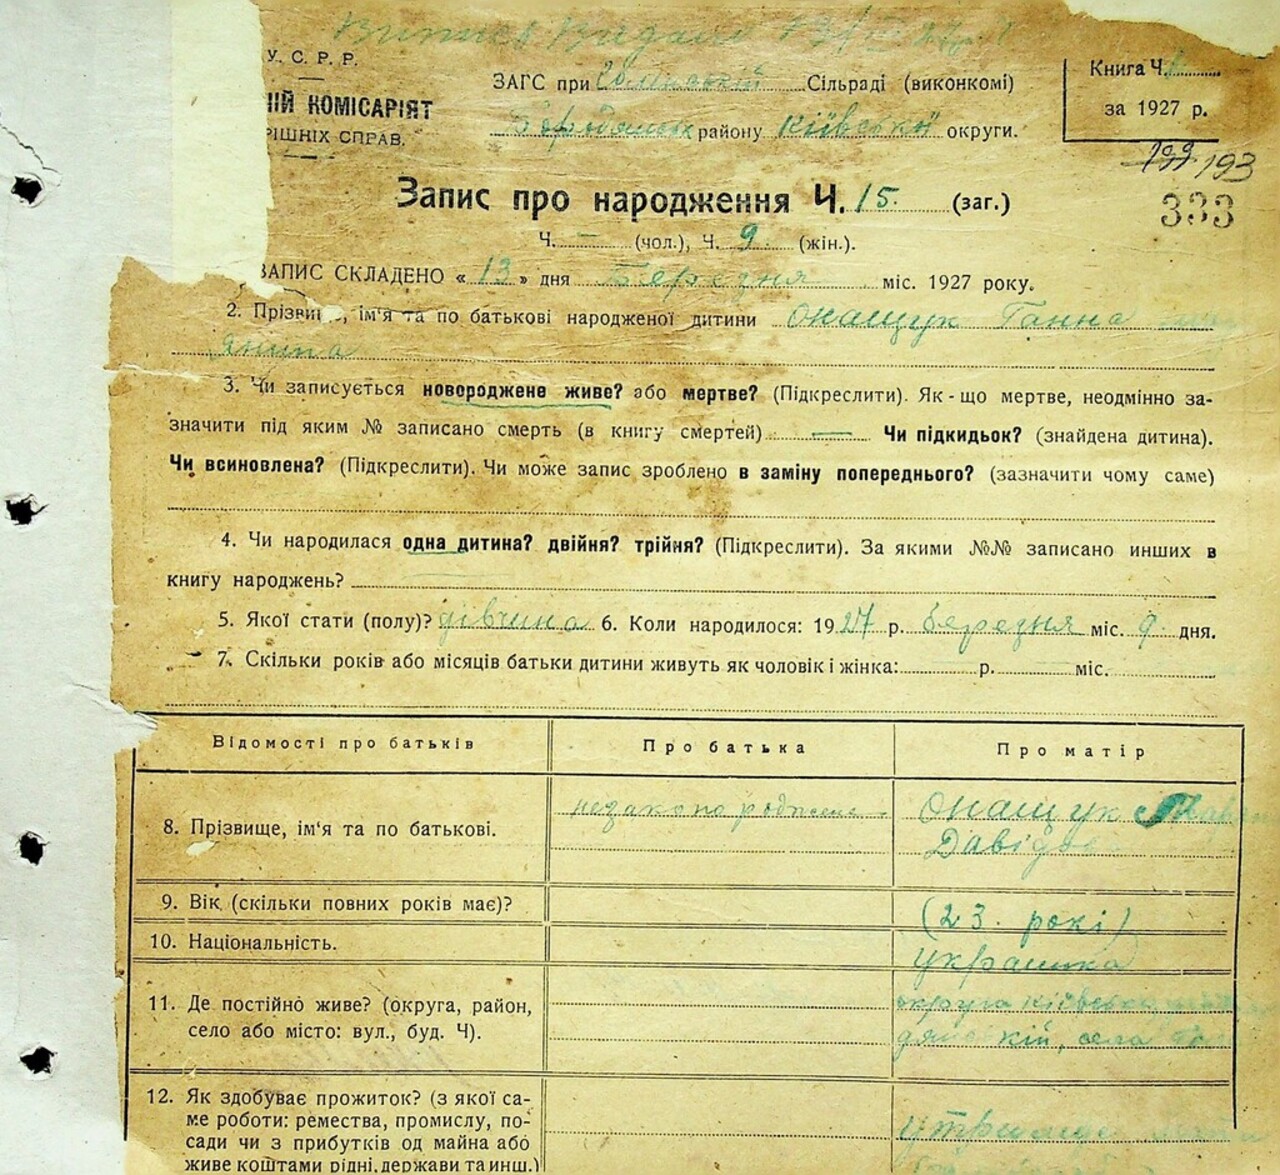 У. С. Р. Р.
НІЙ КОМІСАРІЯТ
РІШНІХ СПРАВ.
ЗАГС при Сільраді (виконкомі)
району Київської округи.
Книга Ч.
за 1927 р.
193
333
Запис про народження Ч. 15. (заг.)
Ч. – (чол.), Ч. 9. (жін.).
ЗАПИС СКЛАДЕНО « 13 » дня Березня міс. 1927 року.
2. Прізвище, ім'я та по батькові народженої дитини Онащук Ганна
3. Чи записується новороджене живе? або мертве? (Підкреслити). Як-що мертве, неодмінно за-
значити під яким № записано смерть (в книгу смертей) — Чи підкидьок? (знайдена дитина).
Чи всиновлена? (Підкреслити). Чи може запис зроблено в заміну попереднього? (зазначити чому саме)
4. Чи народилася одна дитина? двійня? трійня? (Підкреслити). За якими №№ записано инших в
книгу народжень?
5. Якої стати (полу)? дівчина 6. Коли народилося: 1927 р. березня міс. 9. дня.
7. Скільки років або місяців батьки дитини живуть як чоловік і жінка: р. міс.
Відомості про батьків Про батька Про матір
8. Прізвище, ім'я та по батькові. Онащук
9. Вік (скільки повних років має)? (23. рокі)
10. Національність. Українка
11. Де постійно живе? (округа, район, округа Київська
село або місто: вул., буд. Ч). села
12. Як здобуває прожиток? (з якої са-
ме роботи: ремества, промислу, по-
сади чи з прибутків од майна або
живе коштами рідні, держави та инш.)